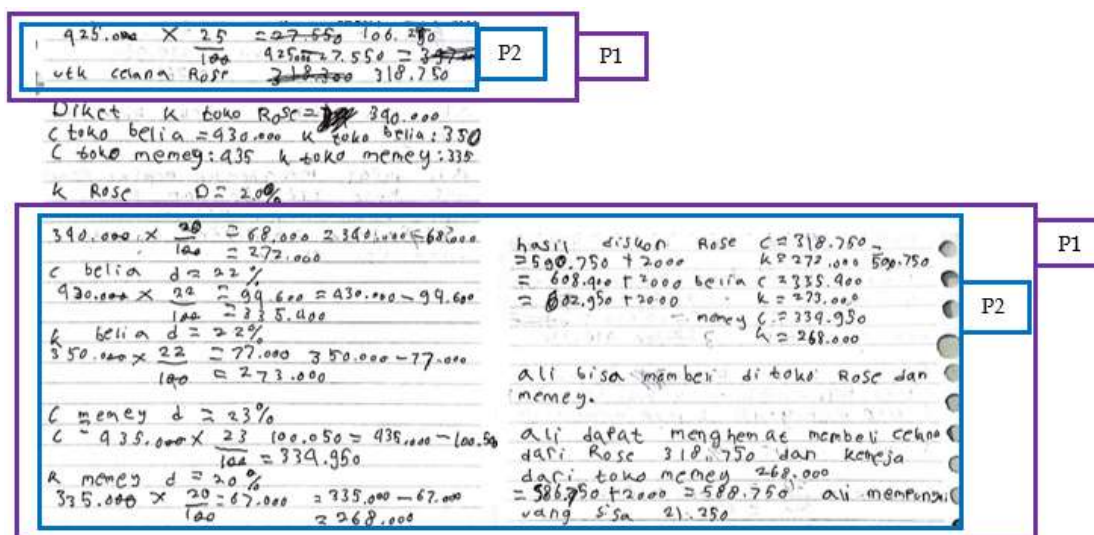 925.000 X 25 = 27.550 106.250
100 425.000 - 27.550 = 397.
utk celana Rose 318.300 318.750
P2
P1
Diket k toko Rose = 340.000
C toko belia = 430.000 k toko belia : 350
C toko memey : 435 k toko memey : 335
k Rose D = 20%
340.000 x 20 = 68.000 = 340.000 - 68.000
100 = 272.000
C belia d = 22%
430.000 x 22 = 94.600 = 430.000 - 94.600
100 = 335.400
k belia d = 22%
350.000 x 22 = 77.000 350.000 - 77.000
100 = 273.000
C memey d = 23%
C = 435.000 x 23 100.050 = 435.000 - 100.50
100 = 334.950
k memey d = 20%
335.000 x 20 = 67.000 = 335.000 - 67.000
100 = 268.000
hasil diskon Rose C = 318.750
= 590.750 + 2000 k = 272.000 590.750
= 608.400 + 2000 belia C = 335.400
= 602.950 + 2000 k = 273.000
memey C = 334.950
k = 268.000
ali bisa membeli di toko Rose dan
memey.
ali dapat menghemat membeli celana
dari Rose 318.750 dan kemeja
dari toko memey 268.000
= 586.750 + 2000 = 588.750 ali mempunyai
uang sisa 21.250
P1
P2